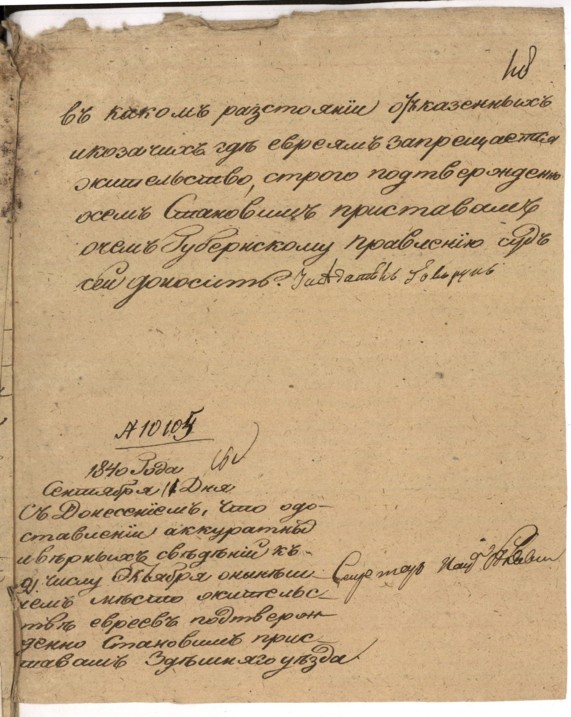 въ какомъ разстоянiи отъ казенныхъ
и козачихъ, гдѣ евреямъ запрещается
жительство, строго подтвержденно
всемъ Становимъ приставамъ
очемъ Губернскому правленiю судъ
сей доноситъ.
№ 10105
1840 Года
Сентября 11 Дня
Съ Донесенiемъ, что одо-
ставленiи аккуратныхъ
и вѣрныхъ свѣденiй къ
числу Октября онынѣш-
немъ мѣсто жительс-
твѣ евреевъ подтверж-
денно Становимъ прис-
тавамъ Здѣшняго уѣзда
Секретарь